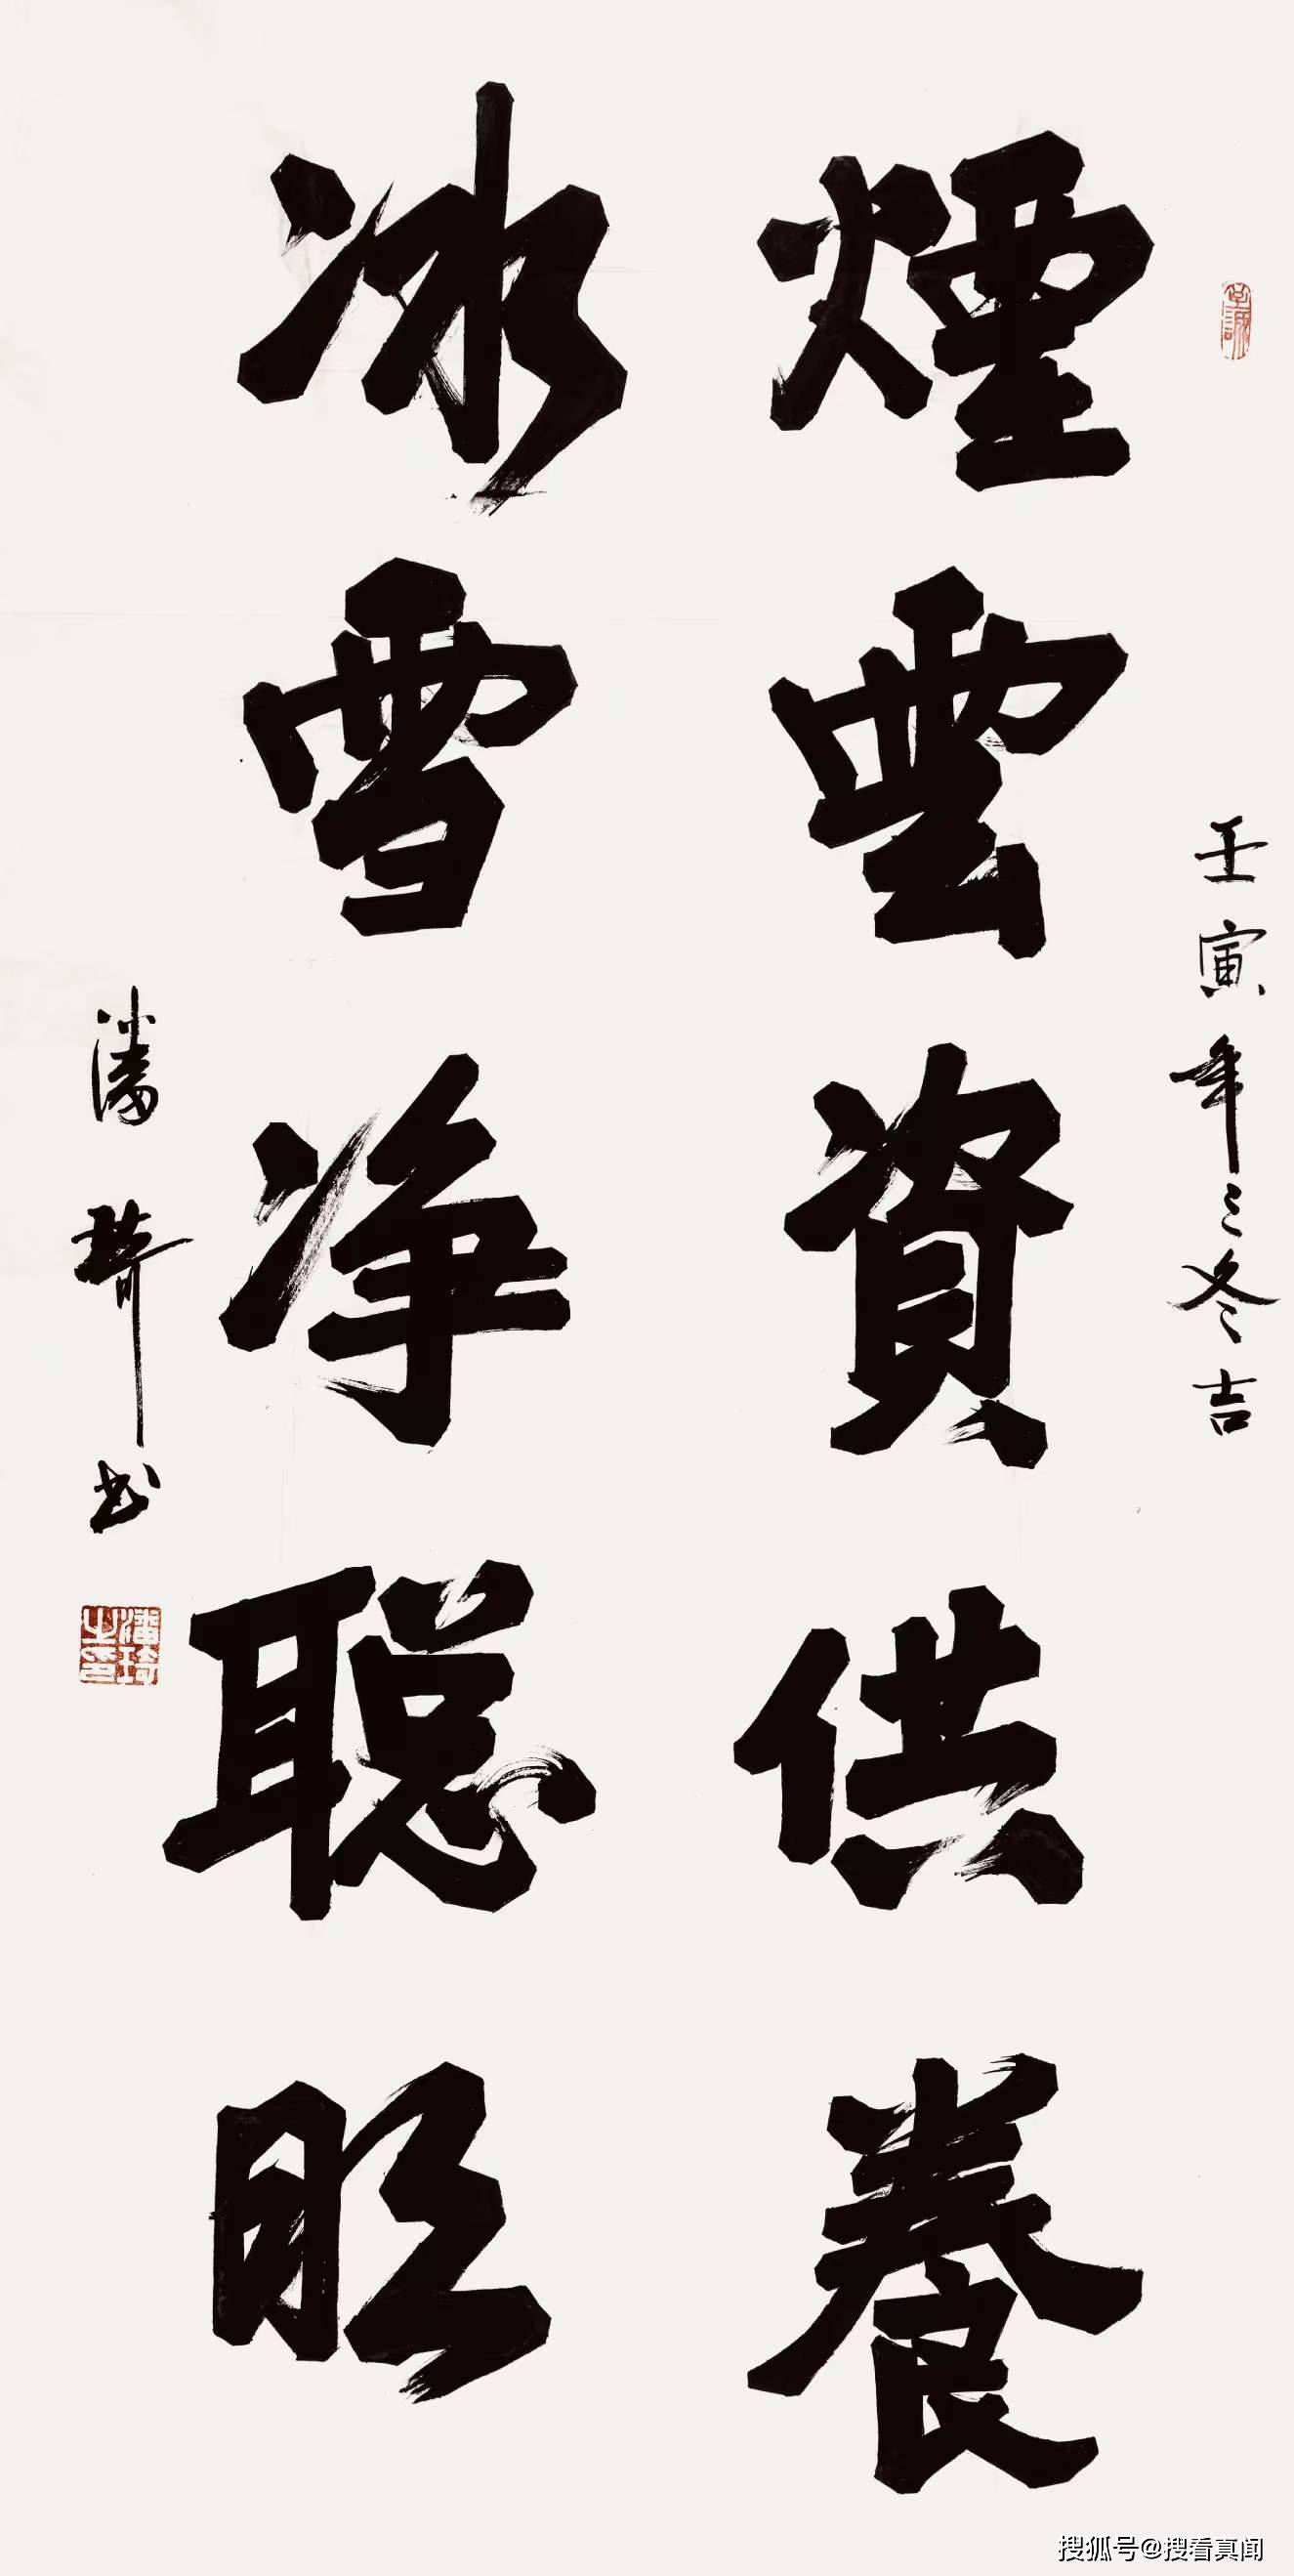 壬寅年三冬吉
煙雲資供養
冰雪净聰明
潘琦书
潘琦之印
搜狐号@搜看真闻